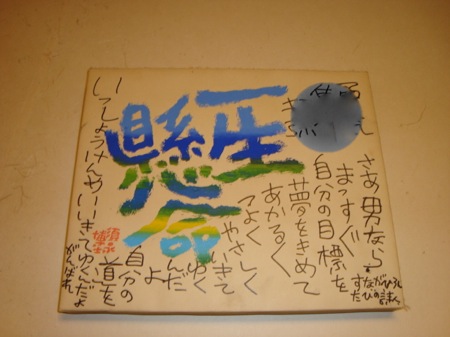 一生
懸命
さあ男なら
まっすぐ
自分の目標を
夢をきめて
あかるく
つよく
やさしく
いきて
ゆく
んだ
よ
自分の
道を
いっしょうけんめいいきてゆくんだよ
がんばれ
須永
博士
すながひろし
たびの詩人